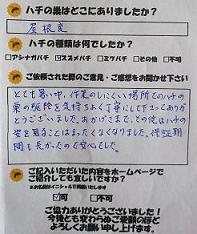 ハチの巣はどこにありましたか?
屋根裏
ハチの種類は何でしたか?
□アシナガバチ ☑スズメバチ □ミツバチ □その他 □不明
ご依頼された際のご意見・ご感想をお聞かせ下さい
とても暑い中、作業のしにくい場所でのハチの
巣の駆除を気持ちよく丁寧にして下さってありが
とうございました。おかげさまで、その後はハチの
姿を見ることはまったくなくなりました。保証期
間も長かったので安心でした。
ご記入いただいた内容をホームページで
ご紹介しても宜しいですか?
※お名前はイニシャルで掲載いたします
☑可 □不可
ご協力ありがとうございました!
今後とも変わらぬご愛顧のほど
よろしくお願い申し上げます。